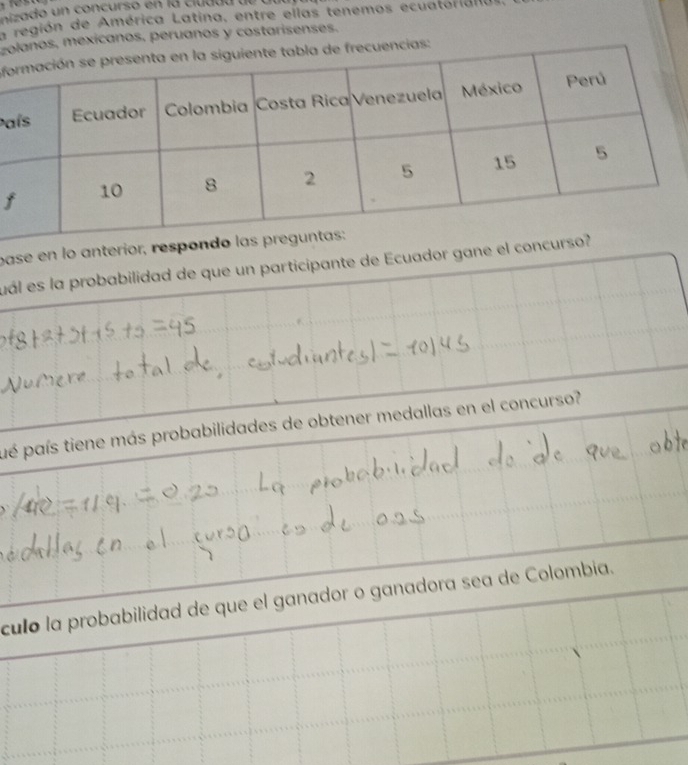 nizado un concurso en la
región de América Latina, entre ellas tenemos
mexicanos, peruanos y costarisenses.
se presenta en la siguiente tabla de frecuencias:
País Ecuador Colombia Costa Rica Venezuela México Perú
f 10 8 2 5 15 5
base en lo anterior, respondo las preguntas:
uál es la probabilidad de que un participante de Ecuador gane el concurso?
=45
Numero total de, estudiantes) = 10/45
ué país tiene más probabilidades de obtener medallas en el concurso?
La probabilidad de de que obte
medallas en el curso es de
culo la probabilidad de que el ganador o ganadora sea de Colombia.